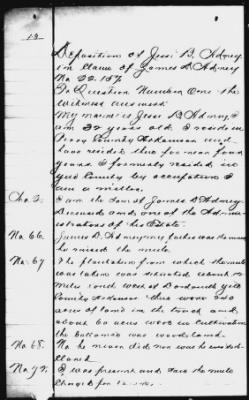 13
Deposition of Jessi B. Adney
in Claim of James D Adney
No 22.157
To Question Number One the
witness answers
My name is Jesse B Adney, I
am 32 years old I reside in
Perry County Arkansas and
have resided there for near four
years. I formerly resided in
Yell County by occupation I
am a miller.
Cho. 2. I am the Son of James D. Adney
Deceased and one of the Admin
istrators of his Estate.
No. 66. James D. Adney my father was
he raised the mule.
No. 67 The plantation from which the mule
was taken was situated about
miles south west of Dardanelle Yell
County Arkansas there were
acres of land in the tract and
about 60 acres were in Cultivation
the ballance was woodland.
No. 68. No he never did nor was he
No. 72. I was present and saw the mule